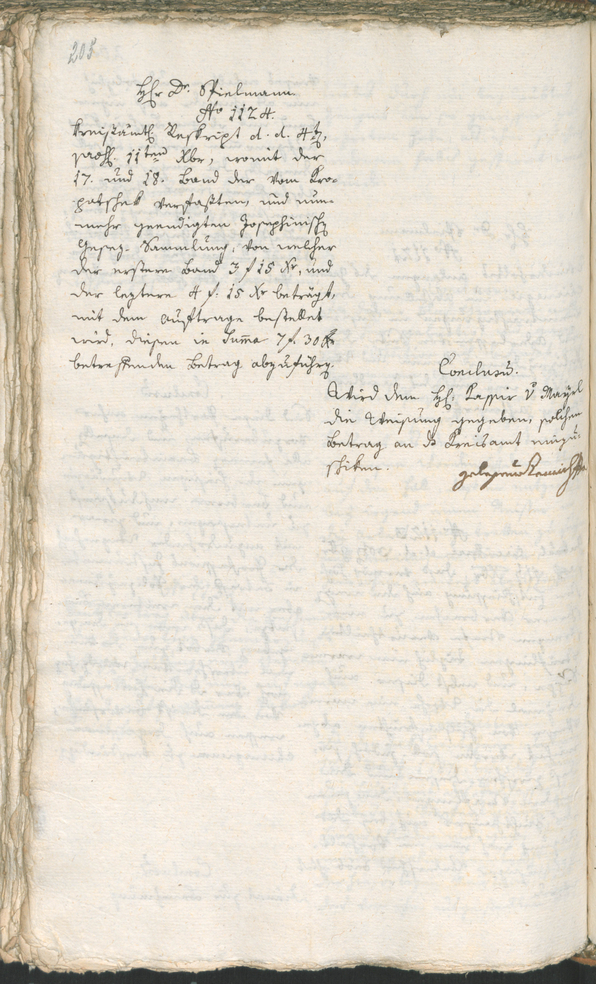 205
Hr Dr. Spielmann
No 1124.
Kreisämtl. Reskript d. d. 4t,
praes. 11ten Xbr, womit der
17. und 18. Band der vom Kro-
patschek verfaßten, und nun-
mehr geendigten Josephinisch
Gesez-Sammlung, von welcher
der erstere Band 3 f 15 Xr, und
der leztere 4 f. 15 Xr beträgt,
mit dem Auftrage bestellet
wird, diesen in Summa 7 f. 30 Xr
betreffenden Betrag abzuführen.
Conclusum.
Wird dem H. Kassir v. Mayrl
die Weisung gegeben, solchen
Betrag an das Kreisamt einzu-
schiken.
gelesen